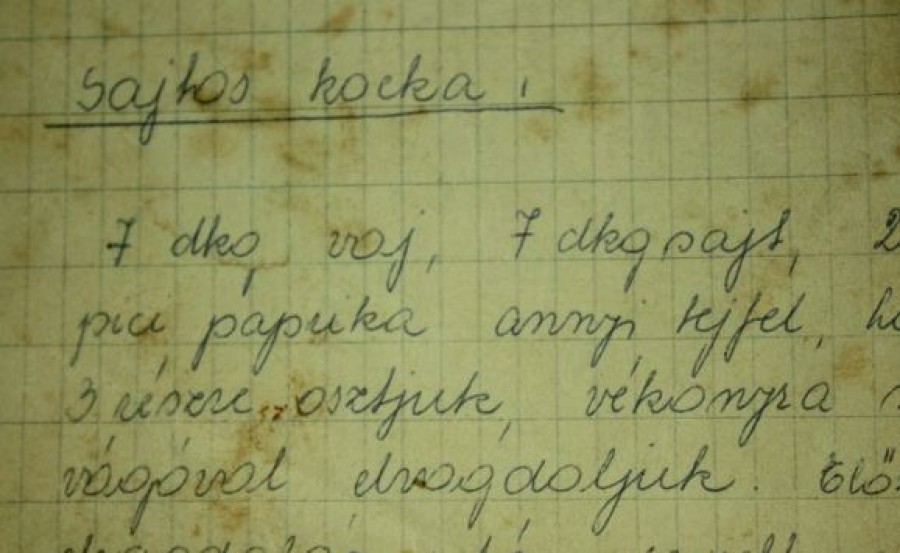 Sajtos kocka.
7 dkg vaj, 7 dkg sajt, 2
pici paprika annyi tejfel,
3 részre osztjuk, vékonyra
vágóval elvagdaljuk. Elő